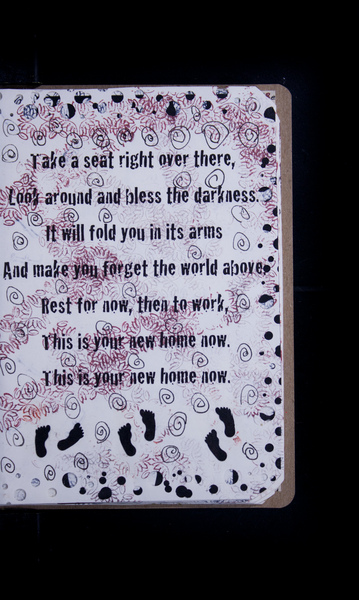 Take a seat right over there,
Look around and bless the darkness.
It will fold you in its arms
And make you forget the world above.
Rest for now, then to work,
This is your new home now.
This is your new home now.